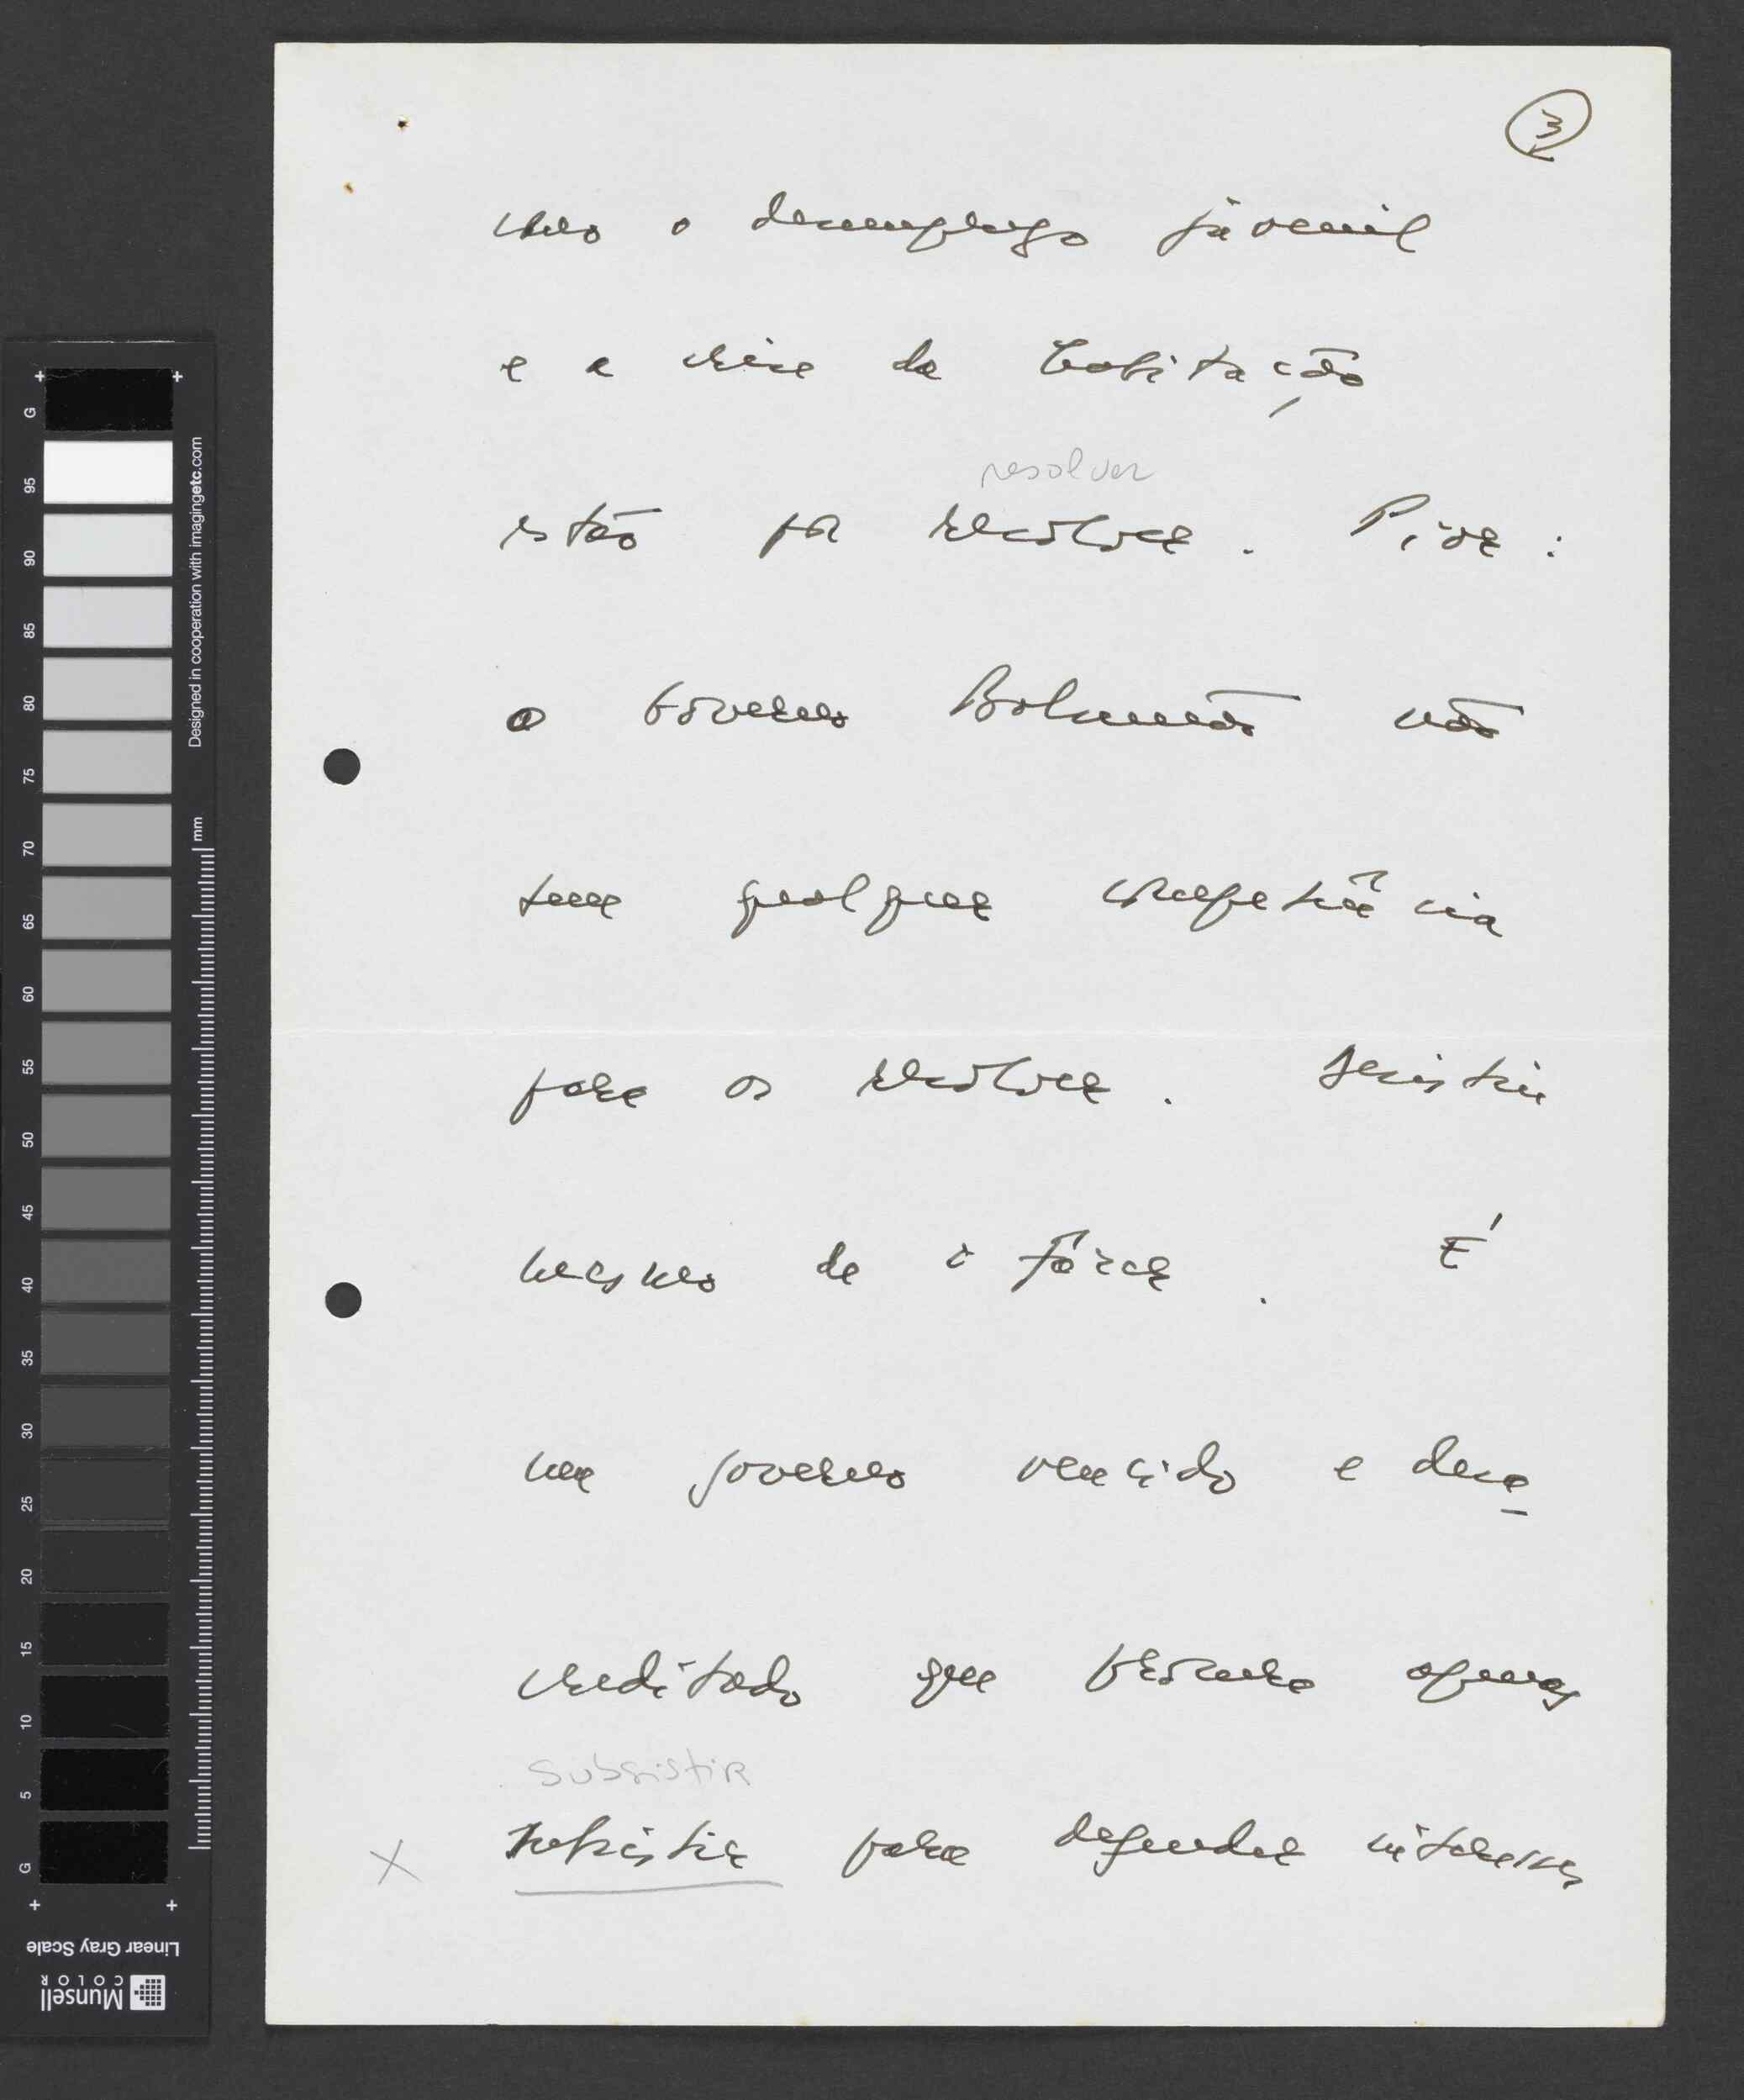 3
como o desemprego juvenil
e a crise da habitação
resolver
estão por resolver. Pior:
o Governo Balsemão não
tem qualquer competência
para os resolver. Desistiu
mesmo de o fazer. É
um governo vencido e desa-
creditado que procura apenas
subsistir
x subsistir para defender interesses
G
95
90
85
80
75
70
65
60
55
50
45
40
35
30
25
20
15
10
5
G
Designed in cooperation with imagingetc.com
mm
Linear Gray Scale
Munsell
COLOR